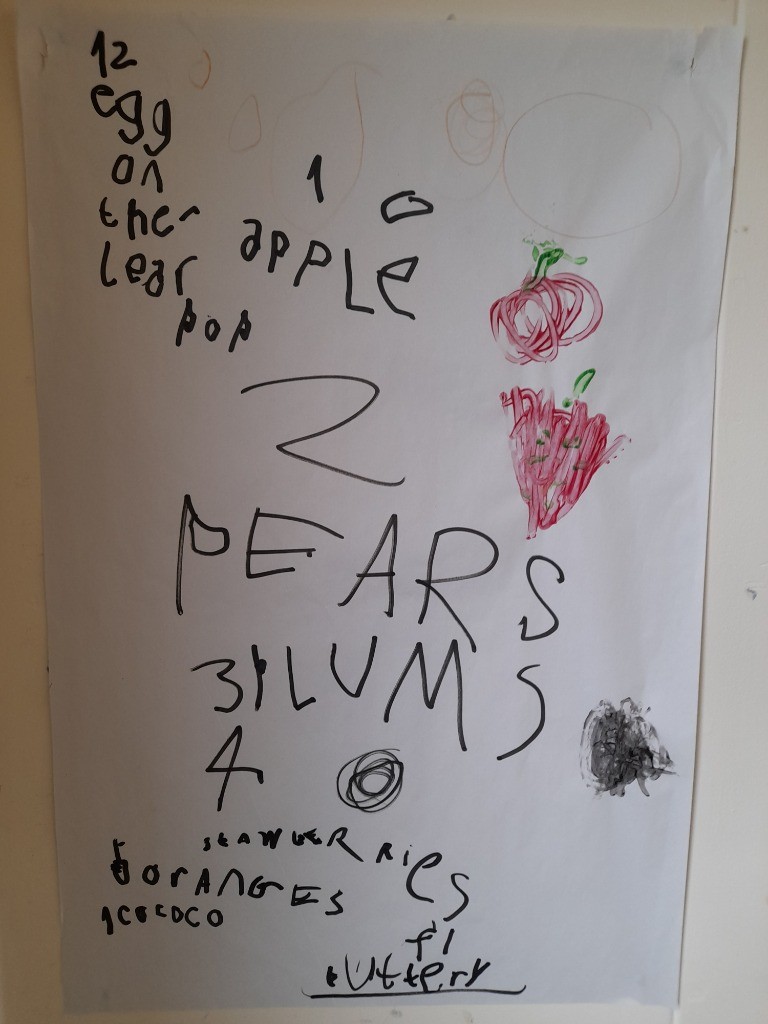 12
egg
on
the
lear
pop
1
apple
2
PEARS
3 PLUMS
4
STAWBERRIES
5 orANGES
1 COCOCO
fl
utterY